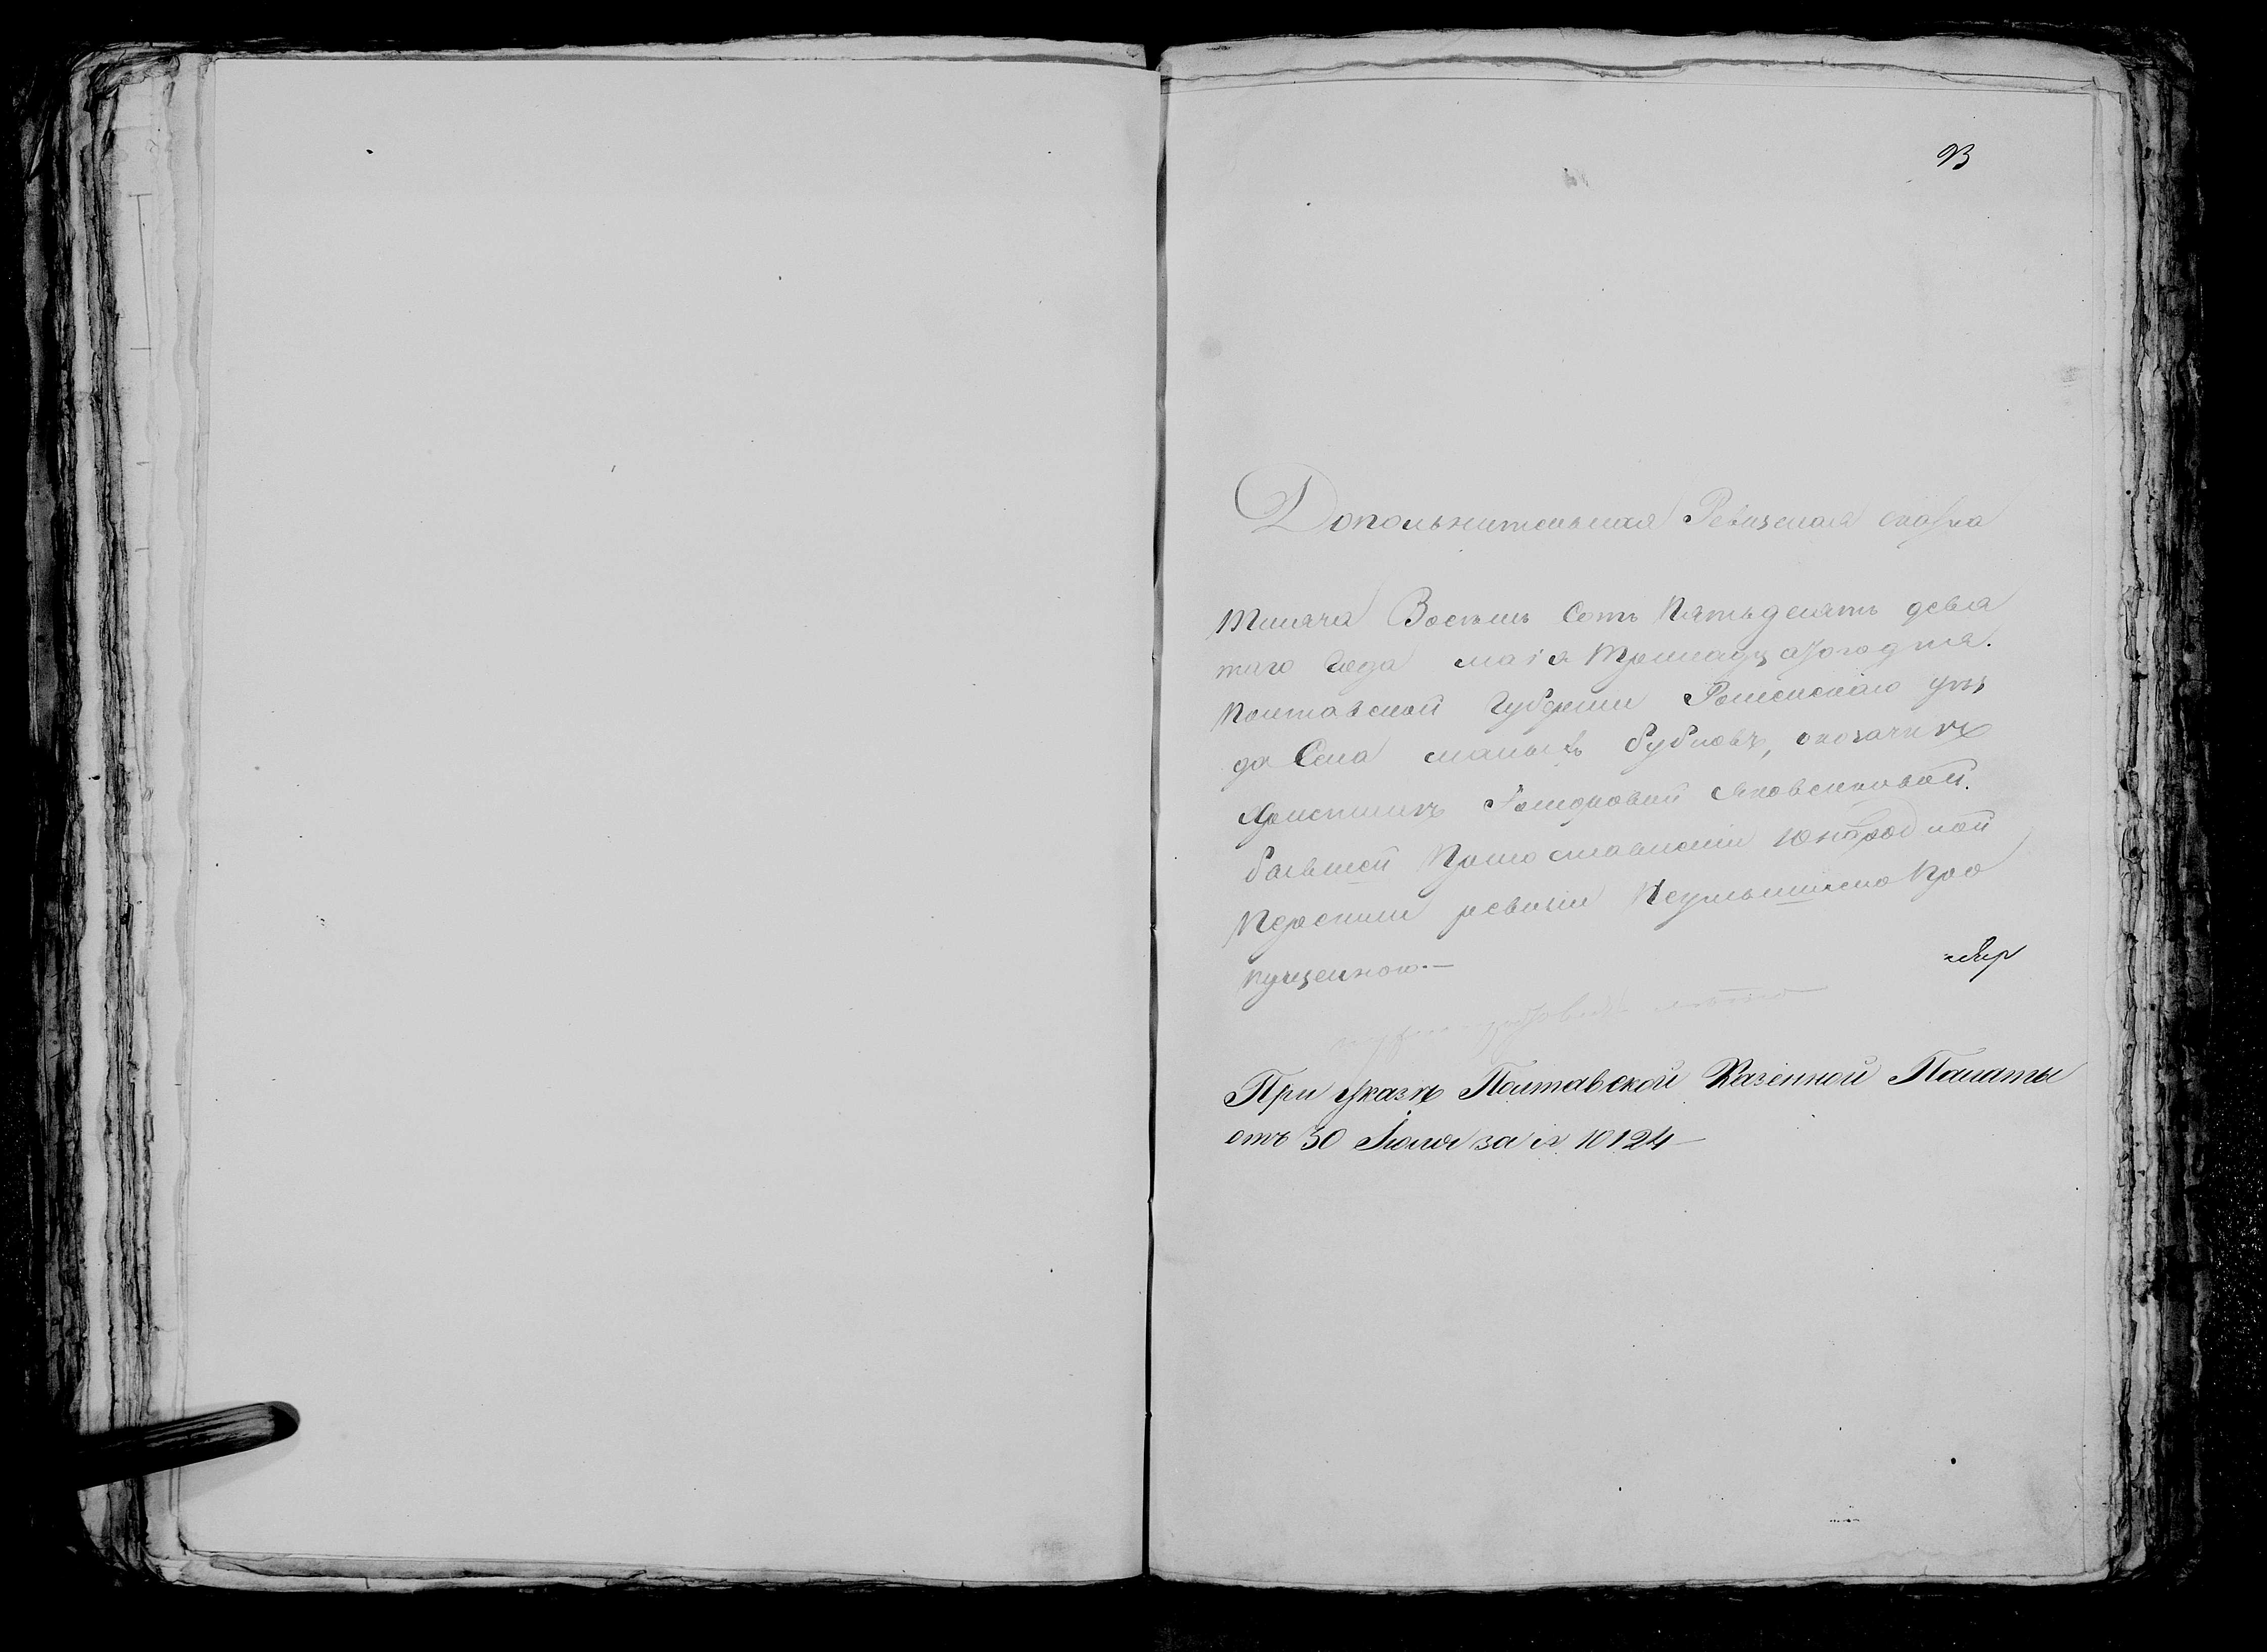 23
Дополнительная Ревизская сказка
Тысяча Восемь Сотъ Пятьдесятъ девя
таго Года маія Тринадцатого дня.
Полтавской Губернии Роменского уѣз
да Села малыхъ бубновъ, о козачкѣ
Христинѣ Яковенковой.
бывшей При составлении 10 народной
Переписи ревизіи Неумышлено Про
пущенною.—
При указѣ Полтавской Казенной Палаты
отъ 30 Июля за № 10124—